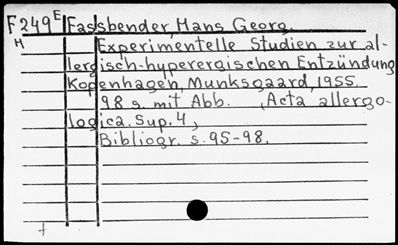 F249E Fassbender, Hans Georg.
H Experimentelle Studien zur al-
lergisch-hyperergischen Entzündung
Kopenhagen, Munksgaard, 1955.
98 s. mit Abb. , Acta allergo-
logica. Sup. 4,
Bibliogr. s. 95-98.